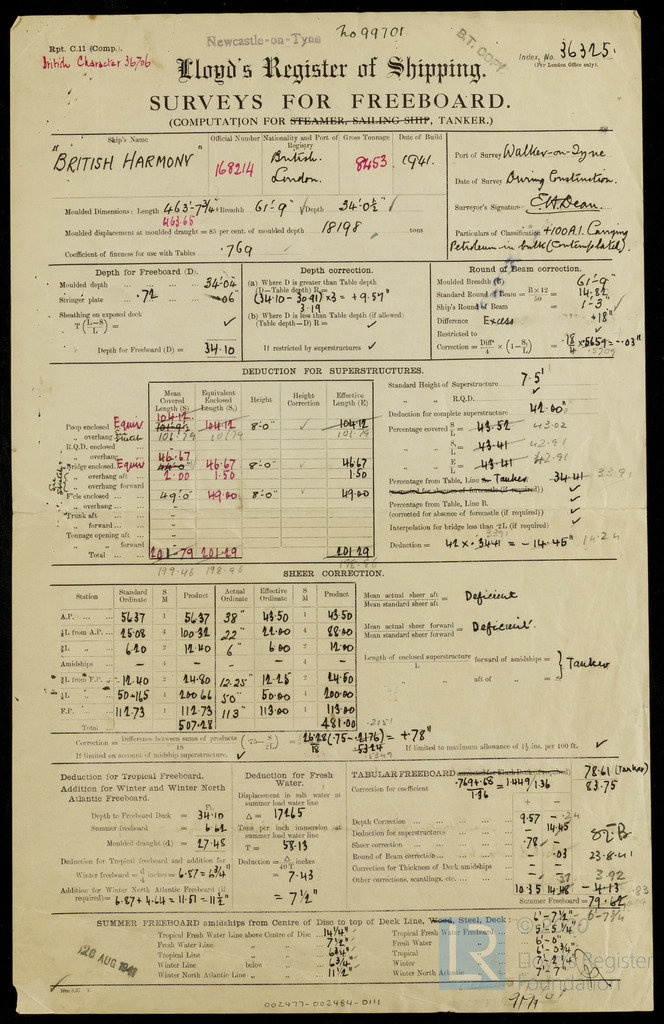 No 99701
Newcastle-on-Tyne
B.T. COPY
Rpt. C.11 (Comp.).
British Character 36706
Index, No. 36325.
(For London Office only).
Lloyd's Register of Shipping.
SURVEYS FOR FREEBOARD.
(COMPUTATION FOR STEAMER, SAILING SHIP, TANKER.)
Ship's Name
Official Number
Nationality and Port of Registry
Gross Tonnage
Date of Build
"BRITISH HARMONY"
168214
British.
London.
8453
1941.
Port of Survey Walker-on-Tyne
Date of Survey During Construction.
Surveyor's Signature E.H. Dean.
Particulars of Classification +100A.1. Carrying
Petroleum in bulk (Contemplated).
Moulded Dimensions: Length 463'-7¾" Breadth 61'-9" Depth 34'-0½"
463.65
Moulded displacement at moulded draught = 85 per cent. of moulded depth 18198 tons
Coefficient of fineness for use with Tables .769
Depth for Freeboard (D).
Moulded depth 34.04
Stringer plate .72 .06
Sheathing on exposed deck
T (L-S/L) =
Depth for Freeboard (D) = 34.10
Depth correction.
(a) Where D is greater than Table depth
(D—Table depth) R=
(34.10 - 30.91) × 3 = + 9.57"
3.19
(b) Where D is less than Table depth (if allowed)
(Table depth—D) R =
If restricted by superstructures
Round of Beam correction.
Moulded Breadth (B) 61'-9"
Standard Round of Beam = B×12/50 = 14.82
Ship's Round of Beam = 1'-3"
Difference Excess .18"
Restricted to
Correction = Diff/4 × (1-S/L) = .18/4 × .5659 = -.03"
DEDUCTION FOR SUPERSTRUCTURES.
Mean Covered Length (S)
Equivalent Enclosed Length (S₁)
Height
Height Correction
Effective Length (E)
Poop enclosed Equiv 104.12 104.12 8'-0" 104.12
" overhang 101.79 101.79 101.79
R.Q.D. enclosed
" overhang
Bridge enclosed Equiv 46.67 46.67 8'-0" 46.67
" overhang aft 2.00 1.50 1.50
" overhang forward
F'cle enclosed 49.0 49.00 8'-0" 49.00
" overhang
Trunk aft
" forward
Tonnage opening aft
" " forward
Total 201.79 201.29 201.29
199.46 198.96 198.96
Standard Height of Superstructure 7.5'
" " R.Q.D.
Deduction for complete superstructure 42.00"
Percentage covered S/L = 43.52 43.02
" S₁/L = 43.41 42.91
" E/L = 43.41 42.91
Percentage from Table, Line Tanker 34.41 33.91
(corrected for absence of forecastle (if required))
Percentage from Table, Line B.
(corrected for absence of forecastle (if required))
Interpolation for bridge less than .2L (if required)
Deduction = 42 × .3441 = - 14.45" 14.24
SHEER CORRECTION.
Station
Standard Ordinate
S M
Product
Actual Ordinate
Effective Ordinate
S M
Product
A.P. 56.37 1 56.37 38" 43.50 1 43.50
⅙L from A.P. 25.08 4 100.32 22" 22.00 4 88.00
⅓L " 6.20 2 12.40 6" 6.00 2 12.00
Amidships – 4 – – – 4 –
⅓L from F.P. 12.40 2 24.80 12.25" 12.25 2 24.50
⅙L " 50.165 4 200.66 50" 50.00 4 200.00
F.P. 112.73 1 112.73 113" 113.00 1 113.00
Total 507.28 481.00
Mean actual sheer aft / Mean standard sheer aft = Deficient
Mean actual sheer forward / Mean standard sheer forward = Deficient.
Length of enclosed superstructure / L forward of amidships =
" " aft of " =
} Tanker
Correction = Difference between sums of products/18 (.75 - S/2L) = 26.28/18 (.75-.2176) = + .78"
.5324
If limited on account of midship superstructure.
If limited to maximum allowance of 1½ ins. per 100 ft.
Deduction for Tropical Freeboard.
Addition for Winter and Winter North Atlantic Freeboard.
Ft.
Depth to Freeboard Deck = 34.10
Summer freeboard = 6.62
Moulded draught (d) = 27.48
Deduction for Tropical freeboard and addition for
Winter freeboard = d/4 inches = 6.87 = 6¾"
Addition for Winter North Atlantic Freeboard (if
required) = 6.87 + 4.64 = 11.51 = 11½"
Deduction for Fresh Water.
Displacement in salt water at
summer load water line
Δ = 17265
Tons per inch immersion at
summer load water line
T = 58.13
Deduction = Δ/40T inches
= 7.43
= 7½"
TABULAR FREEBOARD 78.61 (Tanker)
Correction for coefficient .769+.68/1.36 = 1.449/1.36 83.75
+ –
Depth Correction 9.57 –
Deduction for superstructures – 14.45
Sheer correction .78 –
Round of Beam correction – .03
Correction for Thickness of Deck amidships – –
Other corrections, scantlings, etc. – –
10.35 14.48 - 4.13
Summer Freeboard = 79.62
23.8.41
3.92
SUMMER FREEBOARD amidships from Centre of Disc to top of Deck Line, Wood, Steel, Deck: 6'-7½" 6'-7¾"
Tropical Fresh Water Line above Centre of Disc 14¼"
Fresh Water Line " " 7½"
Tropical Line " " 6¾"
Winter Line below " 6¾"
Winter North Atlantic Line " " 11½"
Tropical Fresh Water Freeboard 5'-5¼"
Fresh Water " 6'-0"
Tropical " 6'-0¾"
Winter " 7'-2¼"
Winter North Atlantic " 7'-7"
28 AUG 1941
LR
Lloyd's Register
Foundation
002477-002484-0111